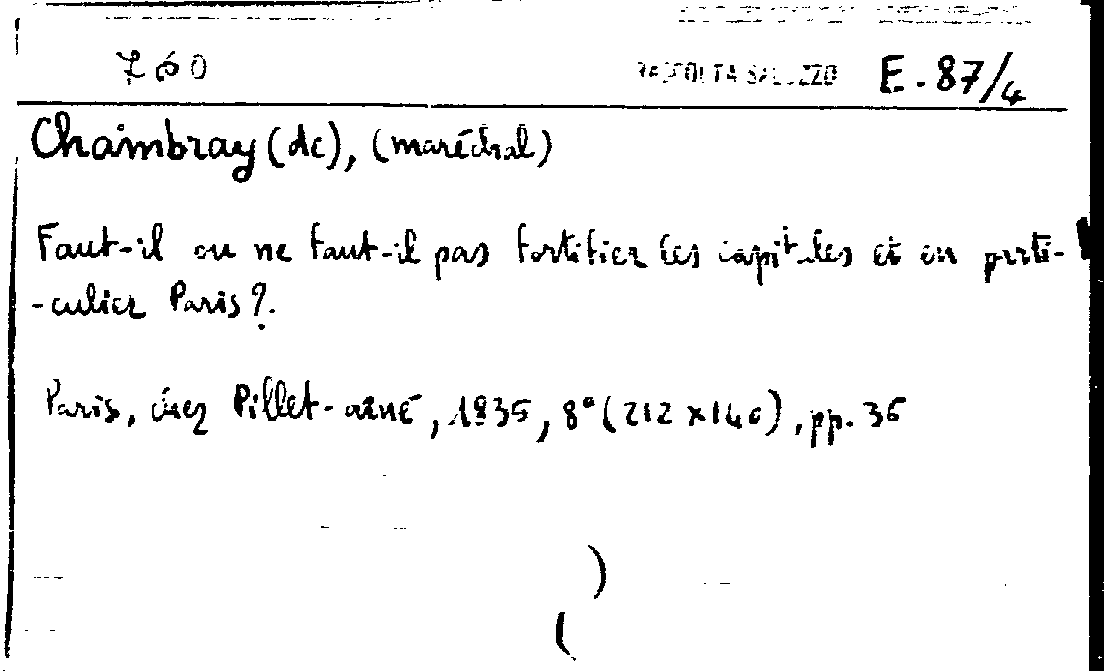 760 RACCOLTA SALUZZO E.87/4
Chambray (de), (maréchal)
Faut-il ou ne faut-il pas fortifier les capitales et en parti-
-culier Paris?.
Paris, chez Pillet-aîné, 1835, 8° (212 x 140), pp. 36